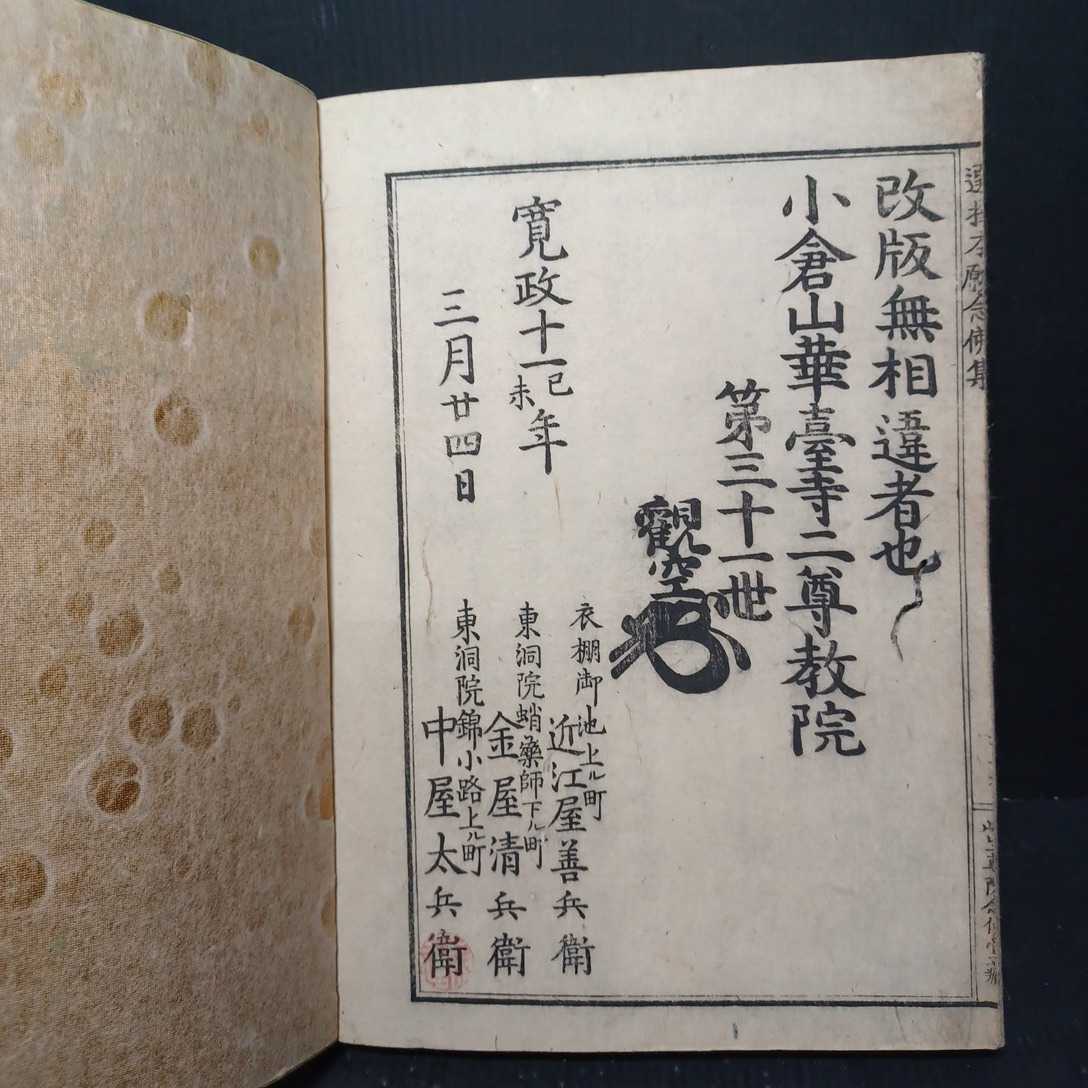 選択本願念佛集
改版無相違者也
小倉山華臺寺二尊教院
第三十一世
觀空
寛政十一己未年
三月廿四日
衣棚御池上ル町
近江屋善兵衛
東洞院蛸藥師下ル町
金屋清兵衛
東洞院錦小路上ル町
中屋太兵衛